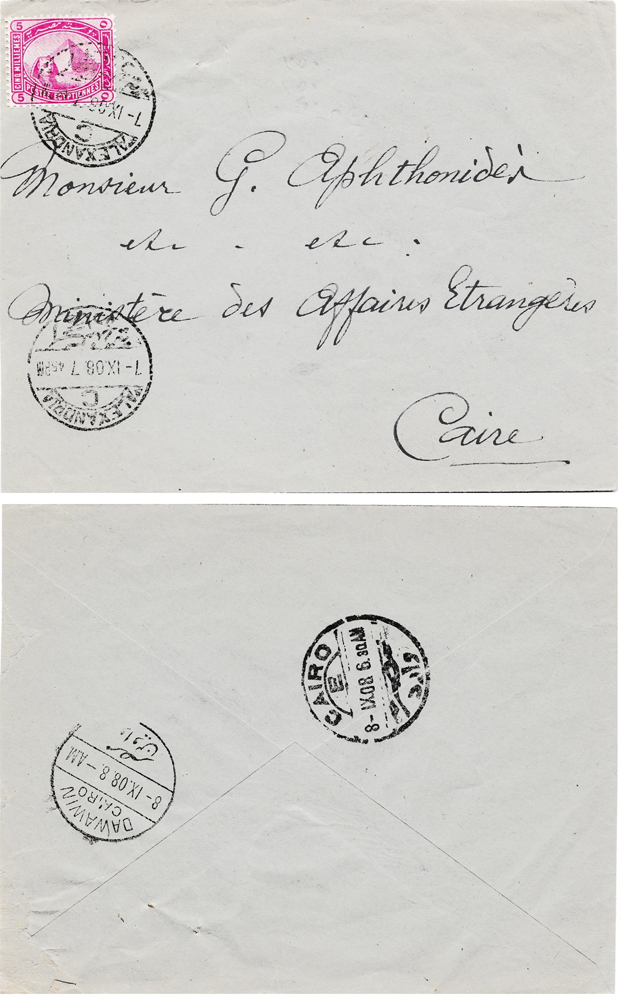 5 5
CINQ MILLIEMES
POSTES EGYPTIENNES
ALEXANDRIA
C
7-IX.08.7
Monsieur G. Aphthonidès
etc. etc.
Ministère des Affaires Etrangères
7-IX.08.7 45PM
C
ALEXANDRIA
Caire
CAIRO
E
8-IX08.9
DAWAWIN
CAIRO
8-IX.08.8-AM